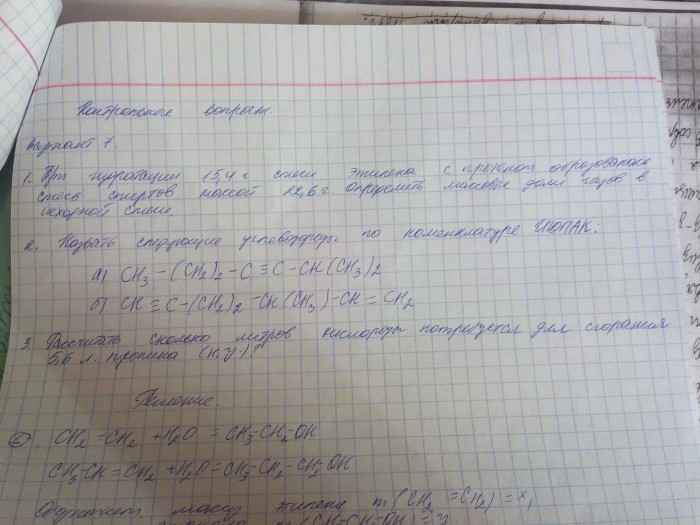 Контрольные вопросы.
Вариант 7.
1. При гидратации 15,4 г смеси этилена с пропеном образовалась
смесь спиртов массой 22,6 г. Определить массовые доли газов в
исходной смеси.
2. Назвать следующие углеводороды по номенклатуре ИЮПАК:
а) CH3 - (CH2)2 - C ≡ C - CH(CH3)2
б) CH ≡ C - (CH2)2 - CH(CH3) - CH = CH2
3. Рассчитать сколько литров кислорода потребуется для сгорания
5,6 л. пропина (н.у.)?
Решение.
CH2 = CH2 + H2O = CH3-CH2-OH
CH3-CH = CH2 + H2O = CH3-CH2-CH2OH
Обозначим массу этилена m(CH2 = CH2) = x,
m(CH3-CH2-OH) = y